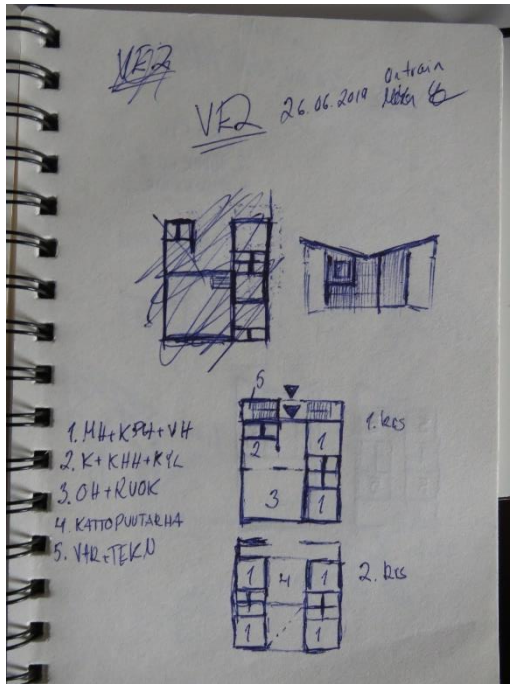 VE2
VE2 26.06.2019 On train
5
1. MH+KPH+VH
2. K+KHH+KYL
3. OH+RUOK
4. KATTOPUUTARHA
5. VAR+TEKN
2 1 1. krs
3 1
1 4 1 2. krs
1 1